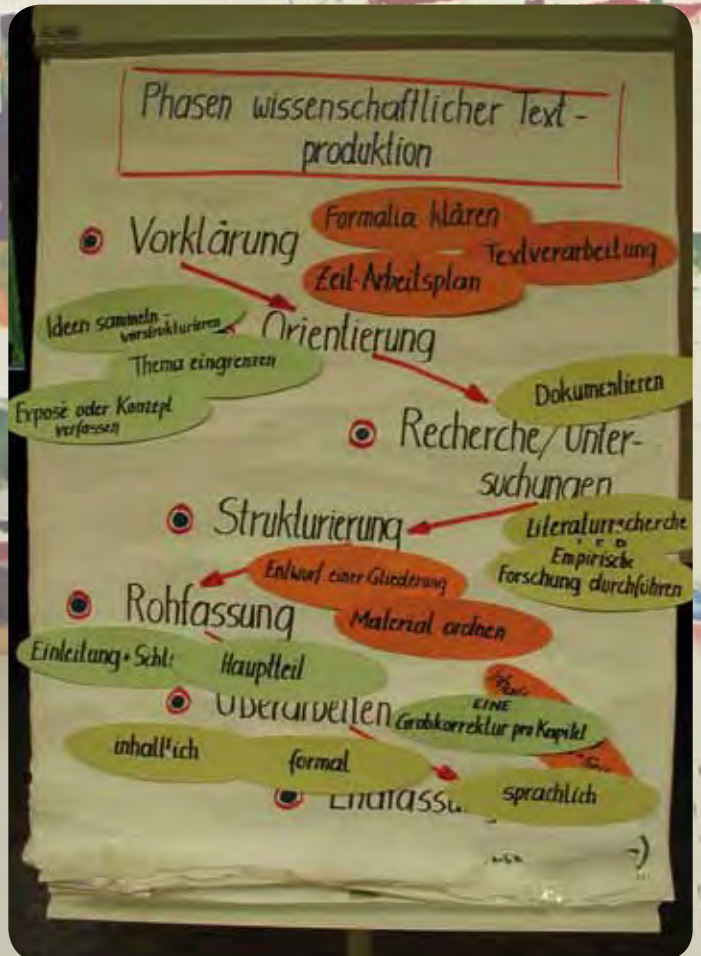 Phasen wissenschaftlicher Text-
produktion
Vorklärung
Formalia klären
Textverarbeitung
Zeit-Arbeitsplan
Ideen sammeln -
vorstrukturieren
Orientierung
Thema eingrenzen
Exposé oder Konzept
verfassen
Dokumentieren
Recherche/Unter-
suchungen
Strukturierung
Literaturrecherche
Empirische
Forschung durchführen
Entwurf einer Gliederung
Rohfassung
Material ordnen
Einleitung + Schl
Hauptteil
Überarbeiten
EINE
Grobkorrektur pro Kapitel
inhaltlich
formal
sprachlich
Endfassu
-)